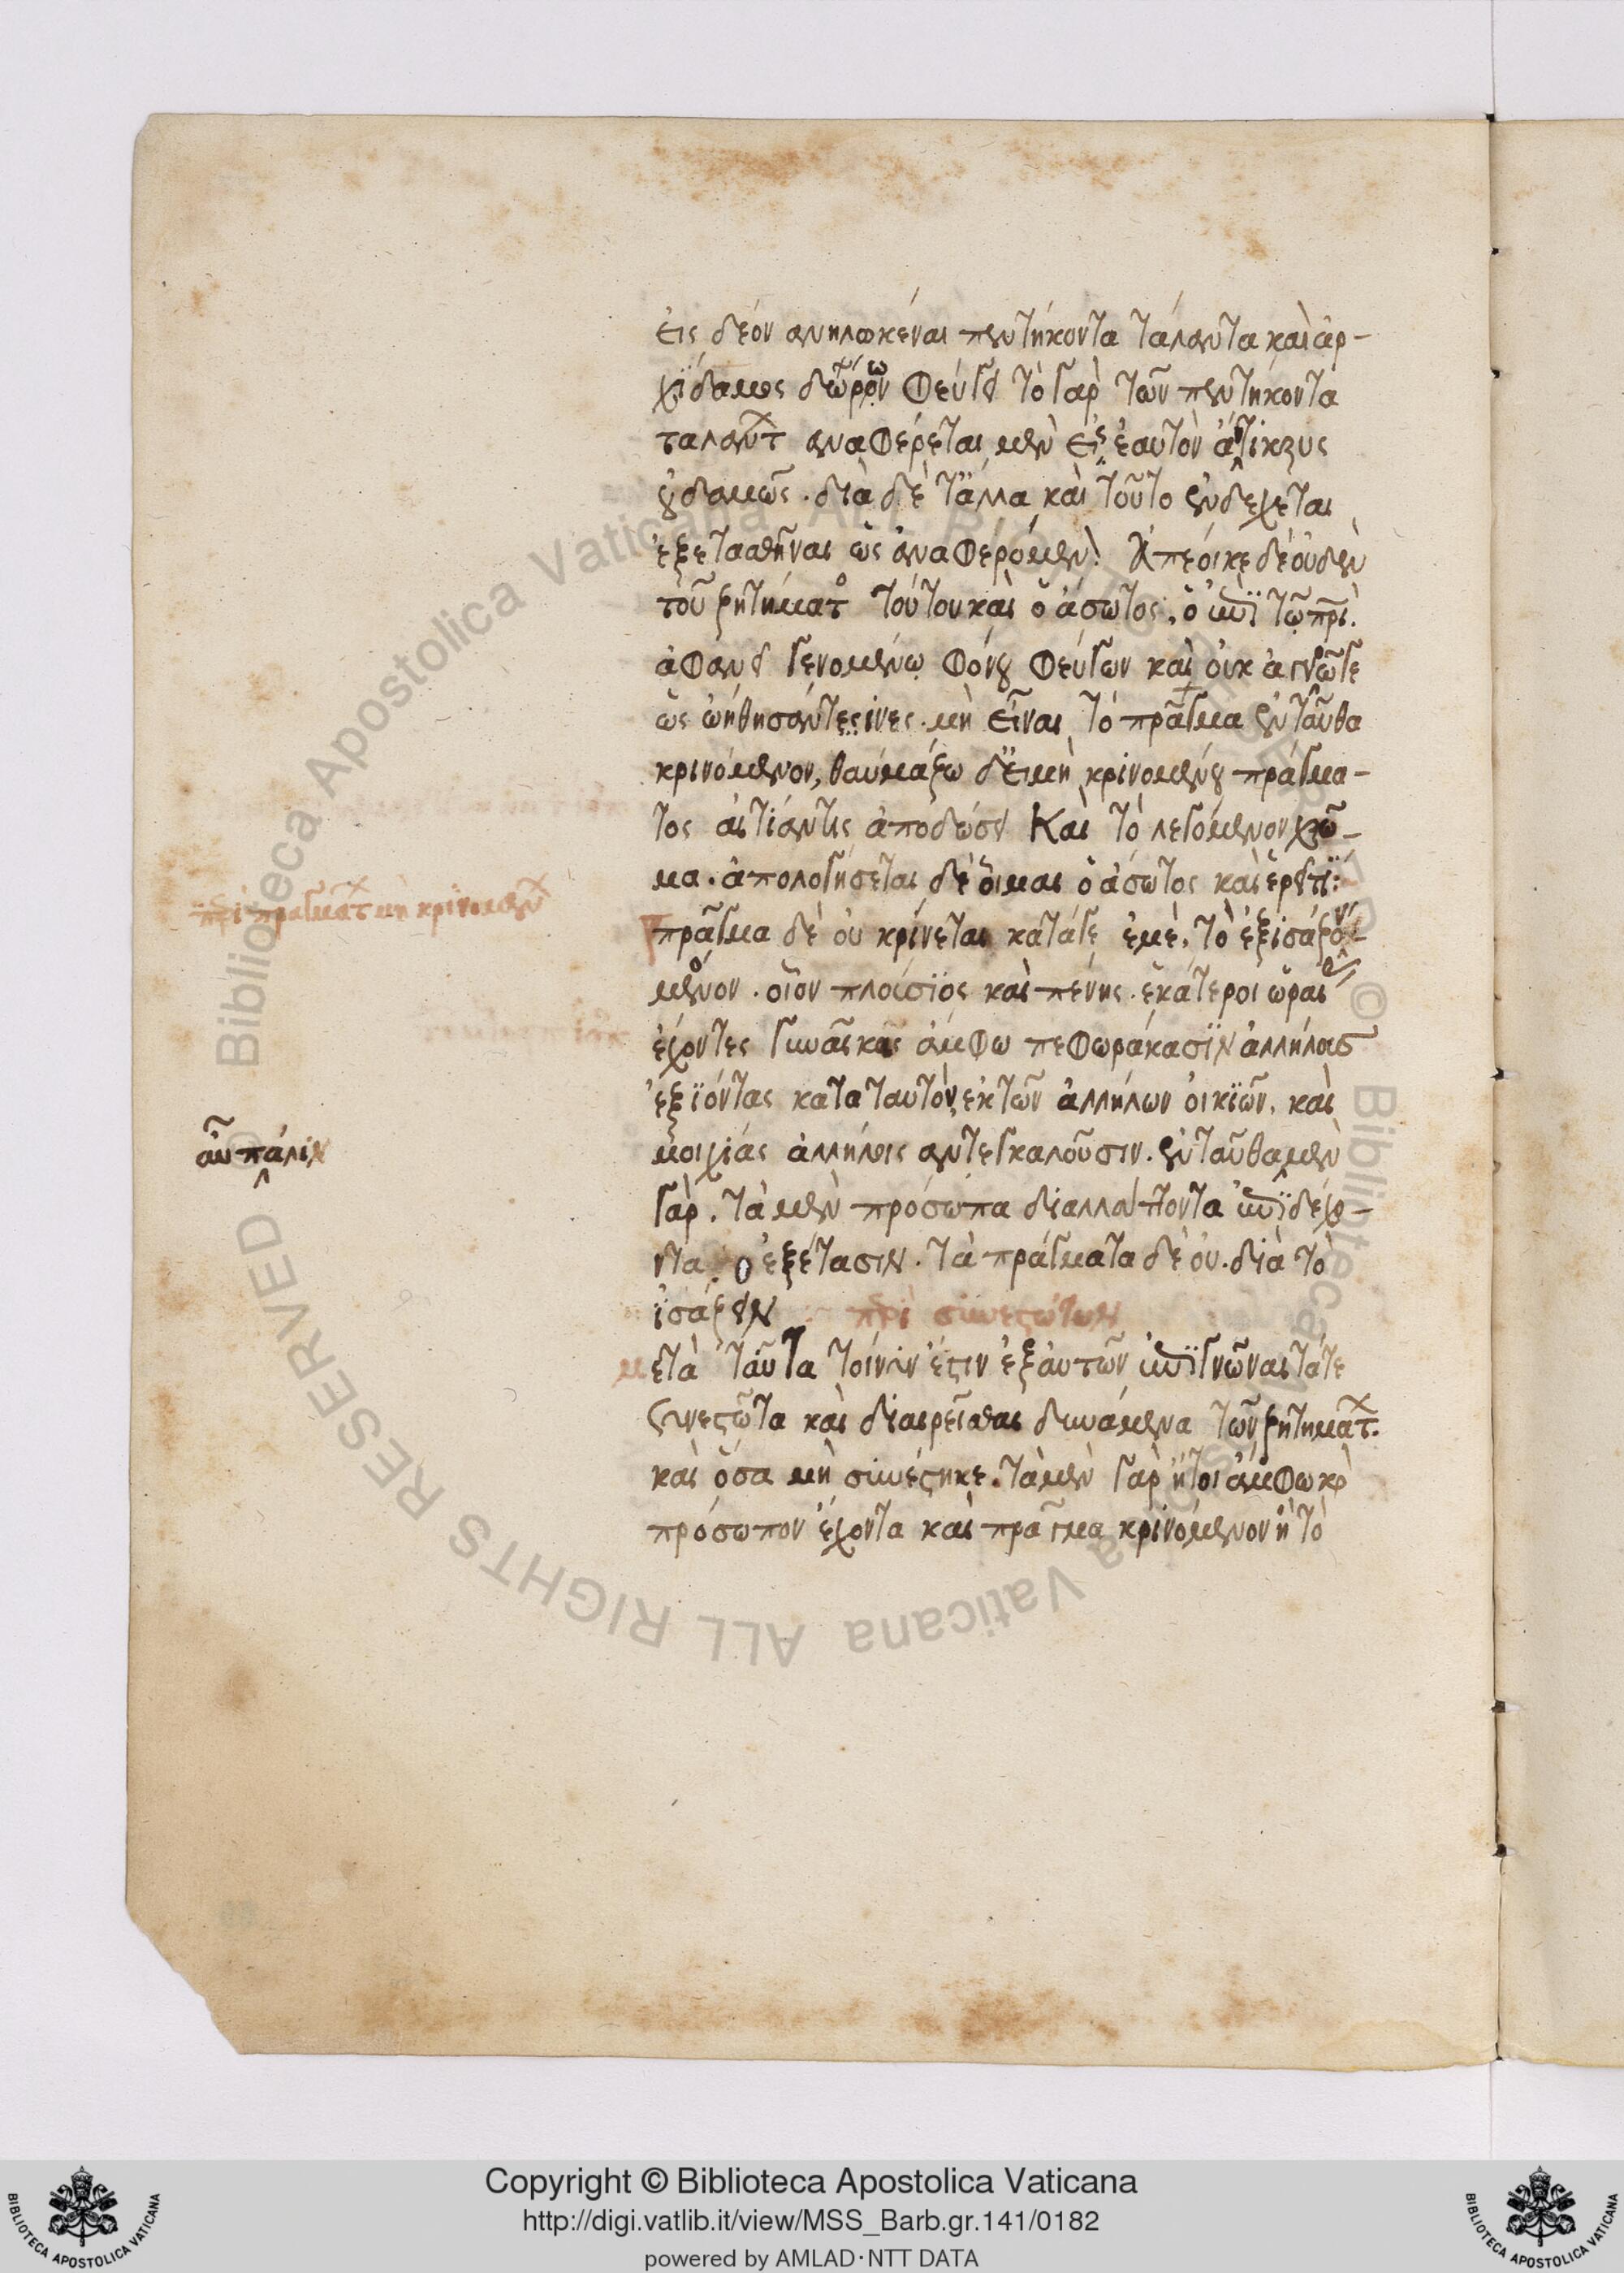 εἰς δέον ἀνηλωκέναι πεντήκοντα τάλαντα καὶ ἀρ-
χίδαμος δώρων φεύγει τὸ γὰρ τῶν πεντήκοντα
ταλάντ ἀναφέρεται μὲν εἰς ἑαυτὸν
οὐδαμῶς. διὰ δὲ τἄλλα καὶ τοῦτο ἐνδέχεται
ἐξετασθῆναι ὡς ἀναφερόμεν Ἀπέοικε δὲ οὐδὲν
τοῦ ζητήματ τούτου καὶ ὁ ἄσωτος, ὁ ἐπὶ τῷ πρι.
ἀφανεῖ γενομένω φόνου φεύγων καὶ οὐκ ἀγνοῶ γε
ὡς ὠήθησάν τινες μὴ εἶναι τὸ πρᾶγμα ἐνταῦθα
κρινόμενον, θαυμάζω δὲ εἰ μὴ κρινομένου πράγμα-
τος αἰτίαν τις ἀποδώσει Καὶ τὸ λεγόμενον χρῶ-
μα. ἀπολογήσεται δὲ οἶμαι ὁ ἄσωτος καὶ ἐρεῖ τι:
περὶ πραγματ μὴ κρινομεν
πρᾶγμα δὲ οὐ κρίνεται κατά γε ἐμὲ. τὸ ἐξισάζον
μενον. οἷον πλούσιος καὶ πένης. ἑκάτεροι ὡραί
ἔχοντες γυναῖκας ἄμφω πεφωράκασιν ἀλλήλους
ἐξιόντας κατα ταυτὸν ἐκ τῶν ἀλλήλων οἰκιῶν. καὶ
αὖ πάλιν
μοιχίας ἀλλήλοις ἀντεγκαλοῦσιν. ἐνταῦθα μὲν
γὰρ. τὰ μὲν πρόσωπα διαλλάττοντα ἐπιδέχο-
νται ἐξέτασιν. τὰ πράγματα δὲ οὐ. διὰ τὸ
ἰσάζειν
περὶ συνεστώτων
μετὰ ταῦτα τοίνυν ἔστιν ἐξ αὐτῶν ἐπιγνῶναι τά τε
συνεστῶτα καὶ διαιρεῖσθαι δυνάμενα τῶν ζητηματ.
καὶ ὅσα μὴ συνέστηκε. τὰ μὲν γὰρ ἤτοι ἄμφω κρ
πρόσωπον ἔχοντα καὶ πρᾶγμα κρινόμενον ἢ τὸ
© Biblioteca Apostolica Vaticana ALL RIGHTS RESERVED
Copyright © Biblioteca Apostolica Vaticana
http://digi.vatlib.it/view/MSS_Barb.gr.141/0182
powered by AMLAD·NTT DATA
BIBLIOTECA APOSTOLICA VATICANA
BIBLIOTECA APOSTOLICA VATICANA